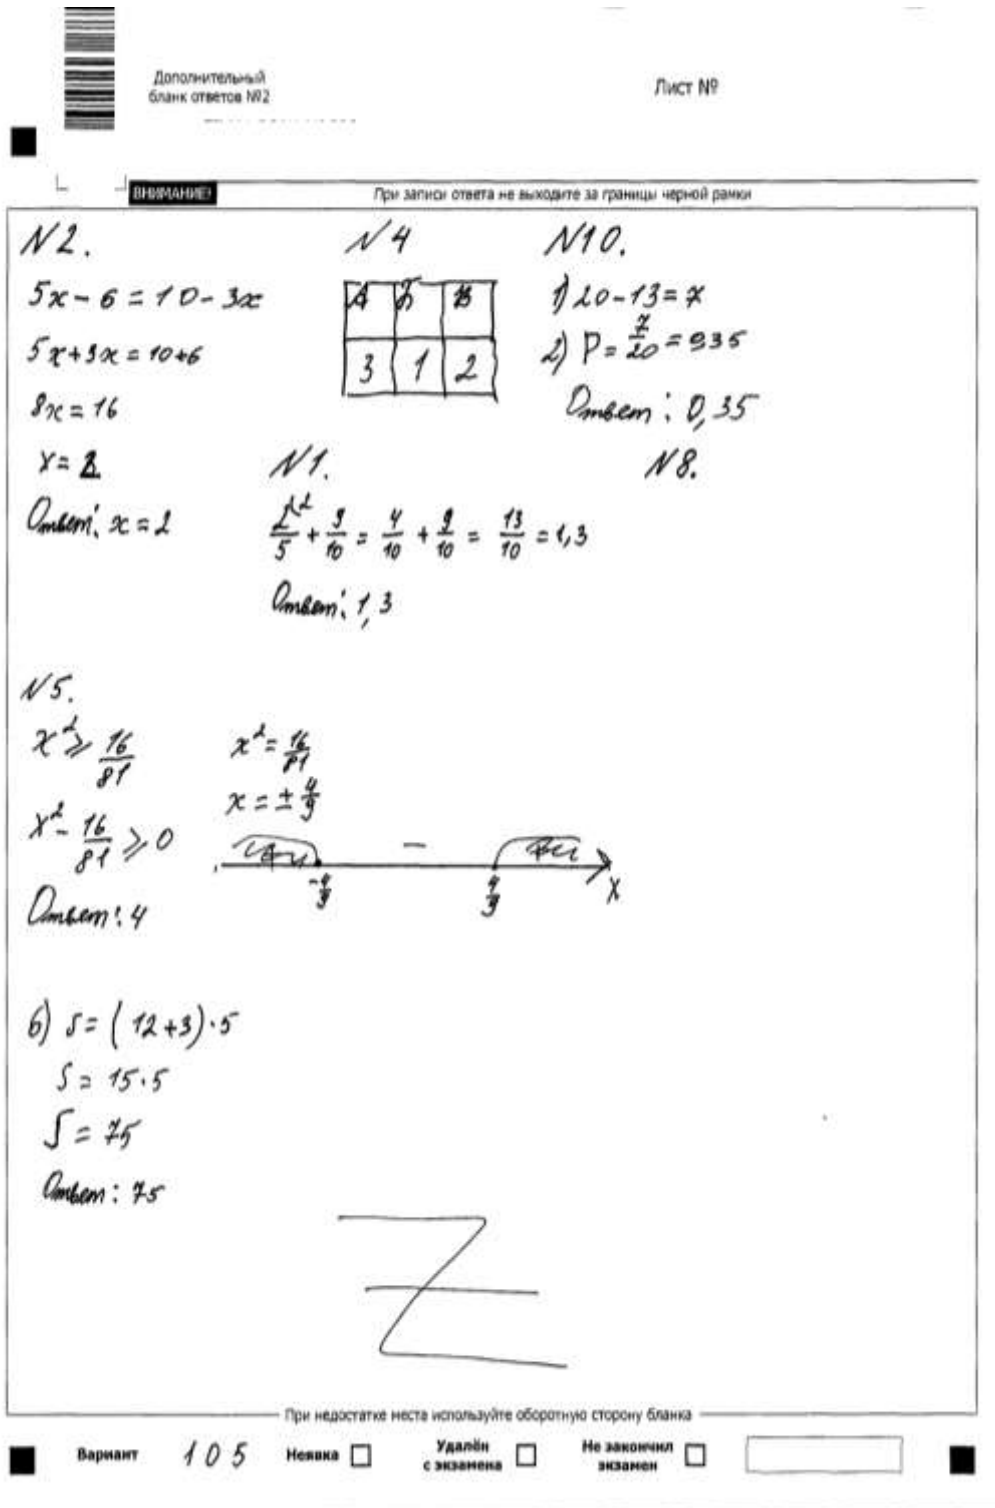 Дополнительный
бланк ответов №2
Лист №
ВНИМАНИЕ!
При записи ответа не выходите за границы черной рамки
N2.
5x - 6 = 10 - 3x
5x + 3x = 10 + 6
8x = 16
x = 2
Ответ: x = 2
N4
А Б В
3 1 2
N10.
1) 20 - 13 = 7
2) P = 7/20 = 0,35
Ответ: 0,35
N1.
2^2/5 + 9/10 = 4/10 + 9/10 = 13/10 = 1,3
Ответ: 1,3
N8.
N5.
x² ≥ 16/81
x² - 16/81 ≥ 0
Ответ: 4
x² = 16/81
x = ± 4/9
-
-4/9 4/9 x
6) S = (12 + 3) · 5
S = 15 · 5
S = 75
Ответ: 75
Z
При недостатке места используйте оборотную сторону бланка
Вариант 105 Неявка Удалён с экзамена Не закончил экзамен